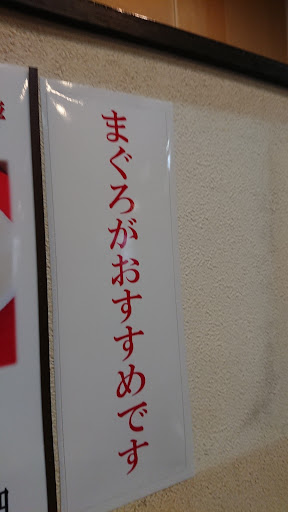 まぐろがおすすめです